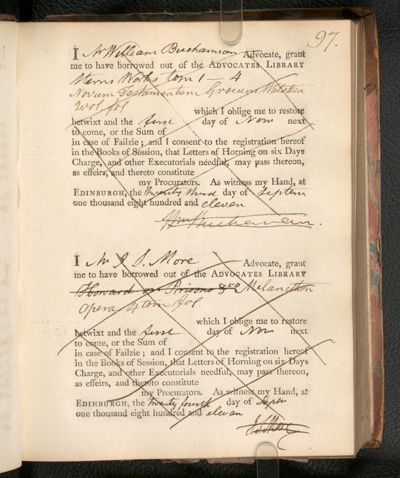 97.
I Mr William Buchannan Advocate, grant
me to have borrowed out of the ADVOCATES LIBRARY
Works tom 1 - 4
Novum Testamentum Grecum
2 vol fol
which I oblige me to restore
betwixt and the first day of Novr next
to come, or the Sum of
in case of Failzie; and I consent to the registration hereof
in the Books of Session, that Letters of Horning on six Days
Charge, and other Executorials needful, may pass thereon,
as effeirs, and thereto constitute
my Procurators. As witness my Hand, at
EDINBURGH, the twenty third day of Septem
one thousand eight hundred and eleven
Wm Buchanan.
I Mr J. S. More Advocate, grant
me to have borrowed out of the ADVOCATES LIBRARY
Howard on Prisons &c Melancthon
Opera 4 tom fol.
which I oblige me to restore
betwixt and the first day of Novr next
to come, or the Sum of
in case of Failzie; and I consent to the registration hereof
in the Books of Session, that Letters of Horning on six Days
Charge, and other Executorials needful, may pass thereon,
as effeirs, and thereto constitute
my Procurators. As witness my Hand, at
EDINBURGH, the twenty fourth day of Septr
one thousand eight hundred and eleven
J S More